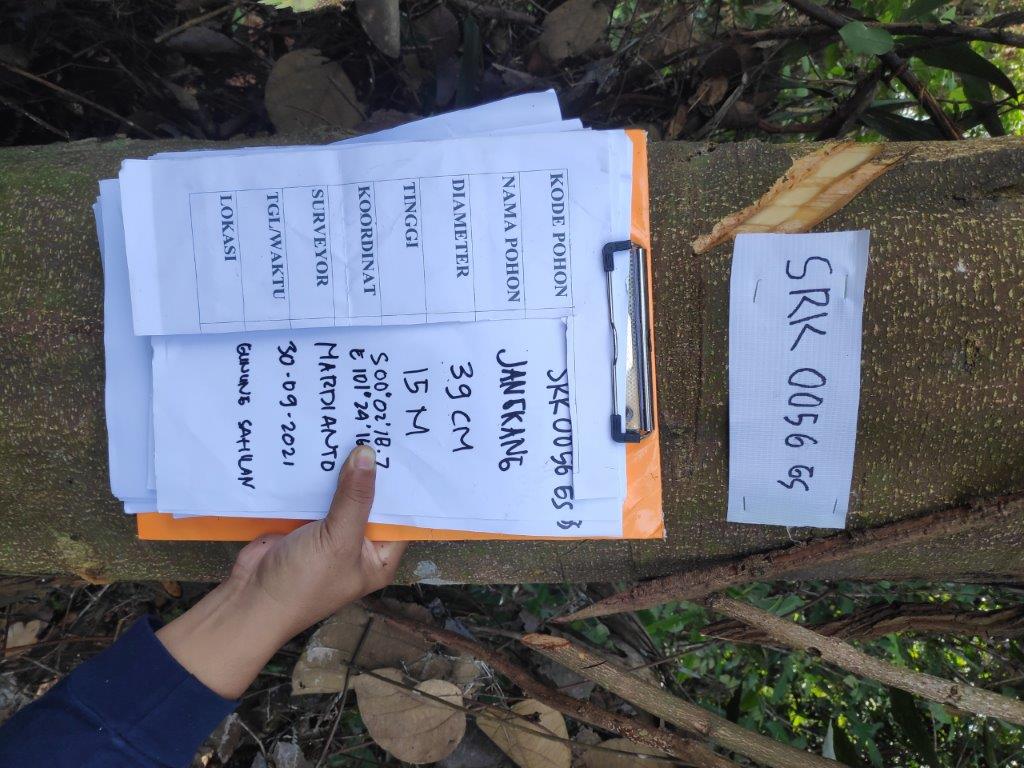 SRK 0056 GS
KODE POHON SRK 0056 GS
NAMA POHON JANGKANG
DIAMETER 39 CM
TINGGI 15 M
KOORDINAT S 00°02'18.7
E 101°24'
SURVEYOR MARDIANTO
TGL/WAKTU 30-09-2021
LOKASI GUNUNG SAHILAN